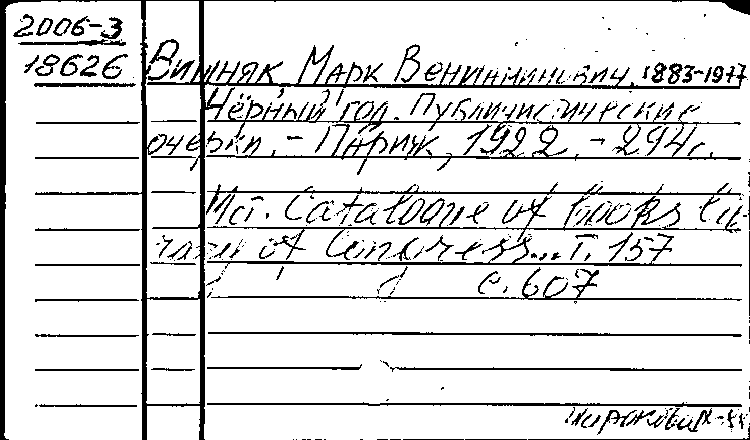 2006-3
18626
Вишняк, Марк Вениаминович, 1883-1977
Чёрный год. Публицистические
очерки. - Париж, 1922. - 294с.
Ист. Catalogue of books Lib-
rary of Congress... т. 157
с. 607